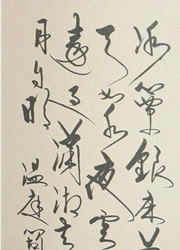 冰簟銀床夢
天如水夜雲
遠過瀟湘去
月自明 温庭筠